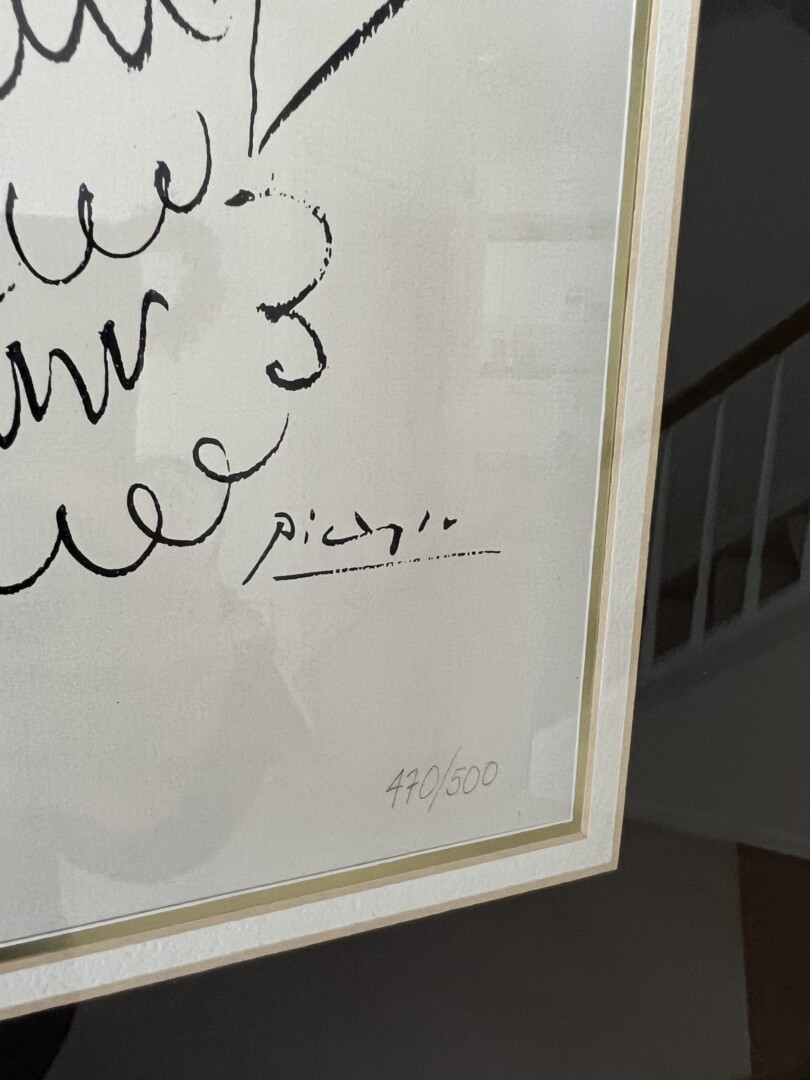 Picasso
470/500